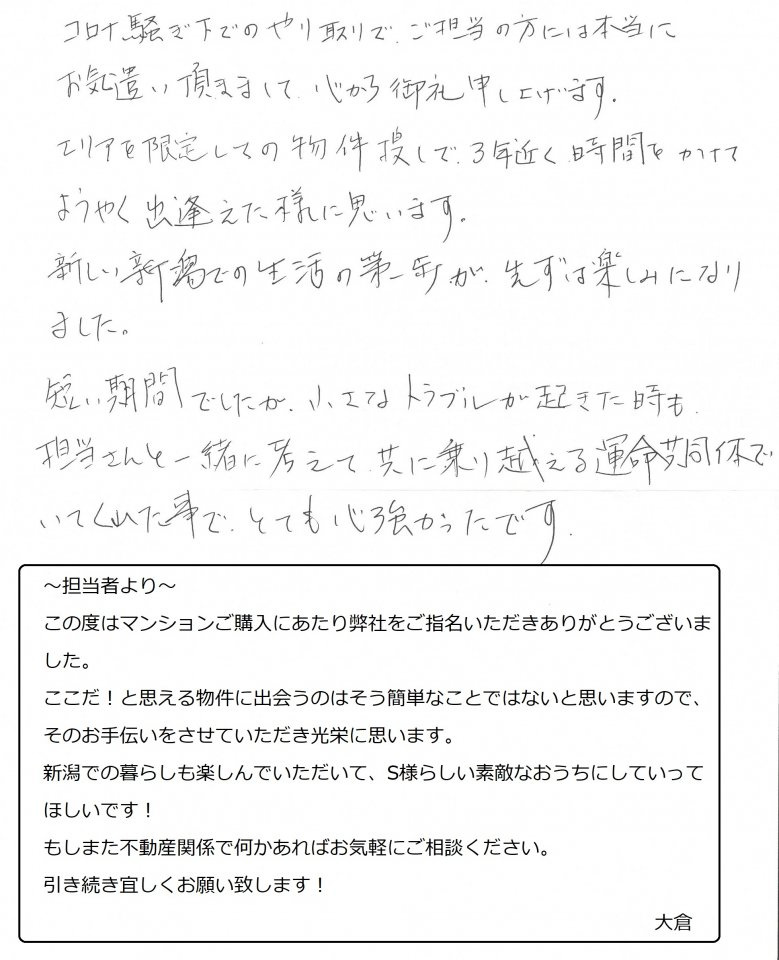 コロナ騒ぎ下でのやり取りで、ご担当の方には本当に
お気遣い頂きまして、心から御礼申し上げます。
エリアを限定しての物件捜しで、3年近く時間をかけて
ようやく出逢えた様に思います。
新しい新潟での生活の第一歩が、先ずは楽しみになり
ました。
短い期間でしたが、小さなトラブルが起きた時も、
担当さんも一緒に考えて、共に乗り越える運命共同体で
いてくれた事で、とても心強かったです。
～担当者より～
この度はマンションご購入にあたり弊社をご指名いただきありがとうございま
した。
ここだ！と思える物件に出会うのはそう簡単なことではないと思いますので、
そのお手伝いをさせていただき光栄に思います。
新潟での暮らしも楽しんでいただいて、S様らしい素敵なおうちにしていって
ほしいです！
もしまた不動産関係で何かあればお気軽にご相談ください。
引き続き宜しくお願い致します！
大倉